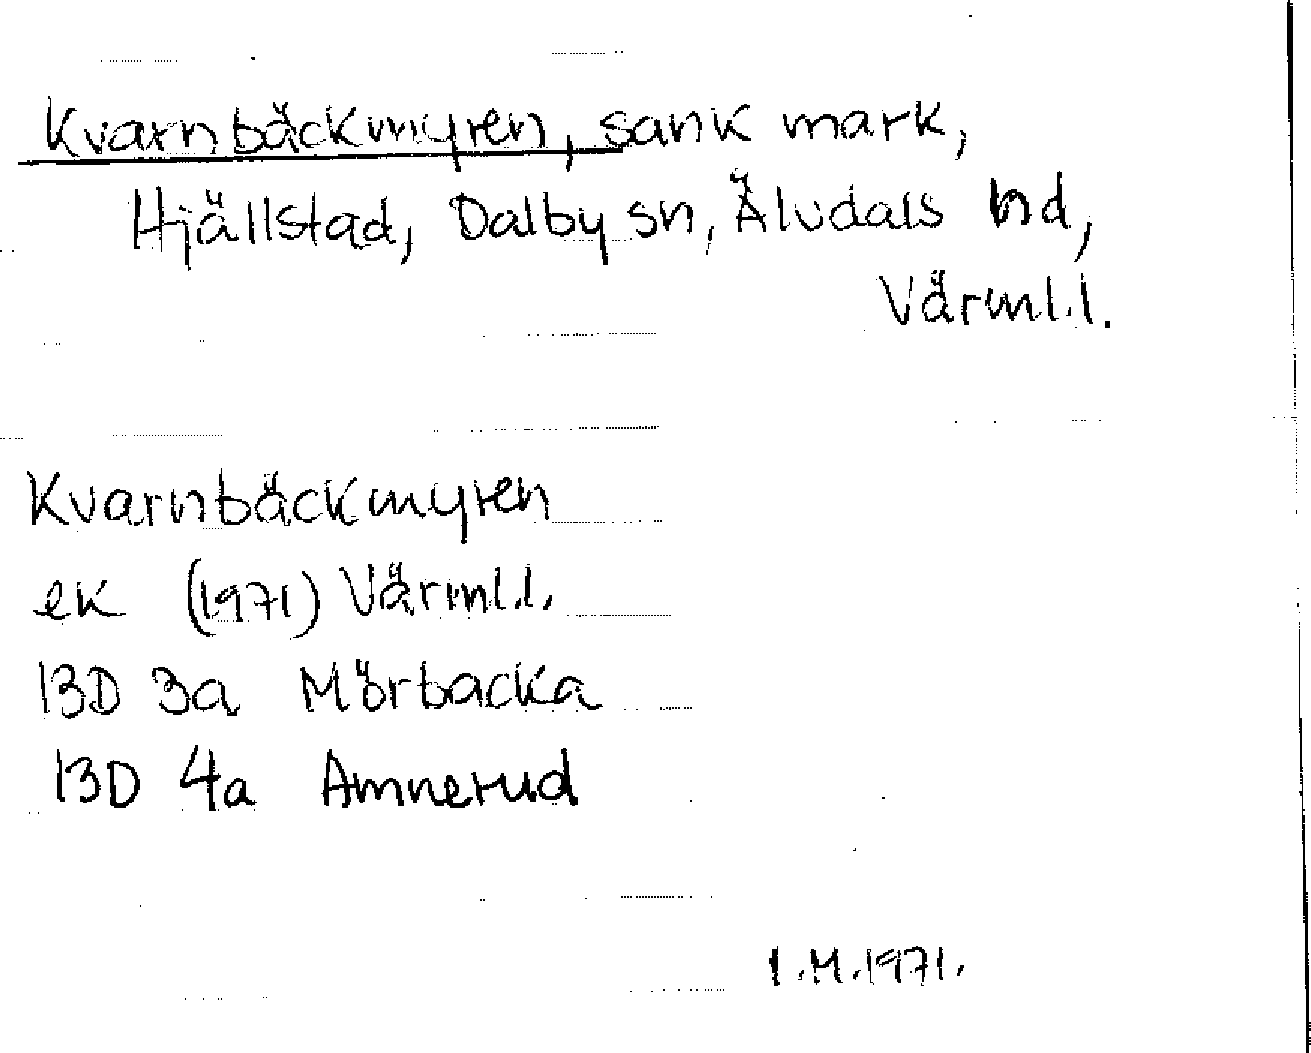 Kvarnbäckmyren, sank mark,
Hjällstad, Dalby sn, Älvdals hd,
Värml.l.
Kvarnbäckmyren
ek (1971) Värml.l.
13D 3a Mörbacka
13D 4a Amnerud
I.M.1971.